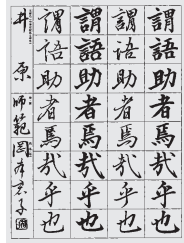 謂語助者焉哉乎也
謂語助者焉哉乎也
謂語助者焉哉乎也
謂語助者焉哉乎也
井原師範